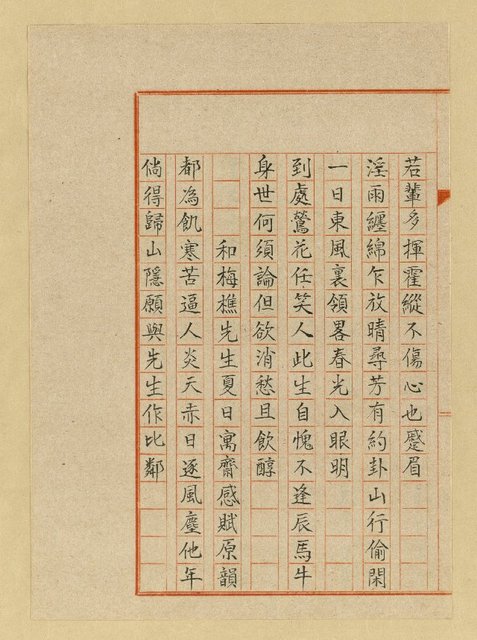 若輩多揮霍縱不傷心也蹙眉
淫雨纏綿乍放晴尋芳有約卦山行偷閑
一日東風裏領畧春光入眼明
到處鶯花任笑人此生自愧不逢辰馬牛
身世何須論但欲消愁且飲醇
和梅樵先生夏日寓齋感賦原韻
都為飢寒苦逼人炎天赤日逐風塵他年
倘得歸山隱願與先生作比鄰